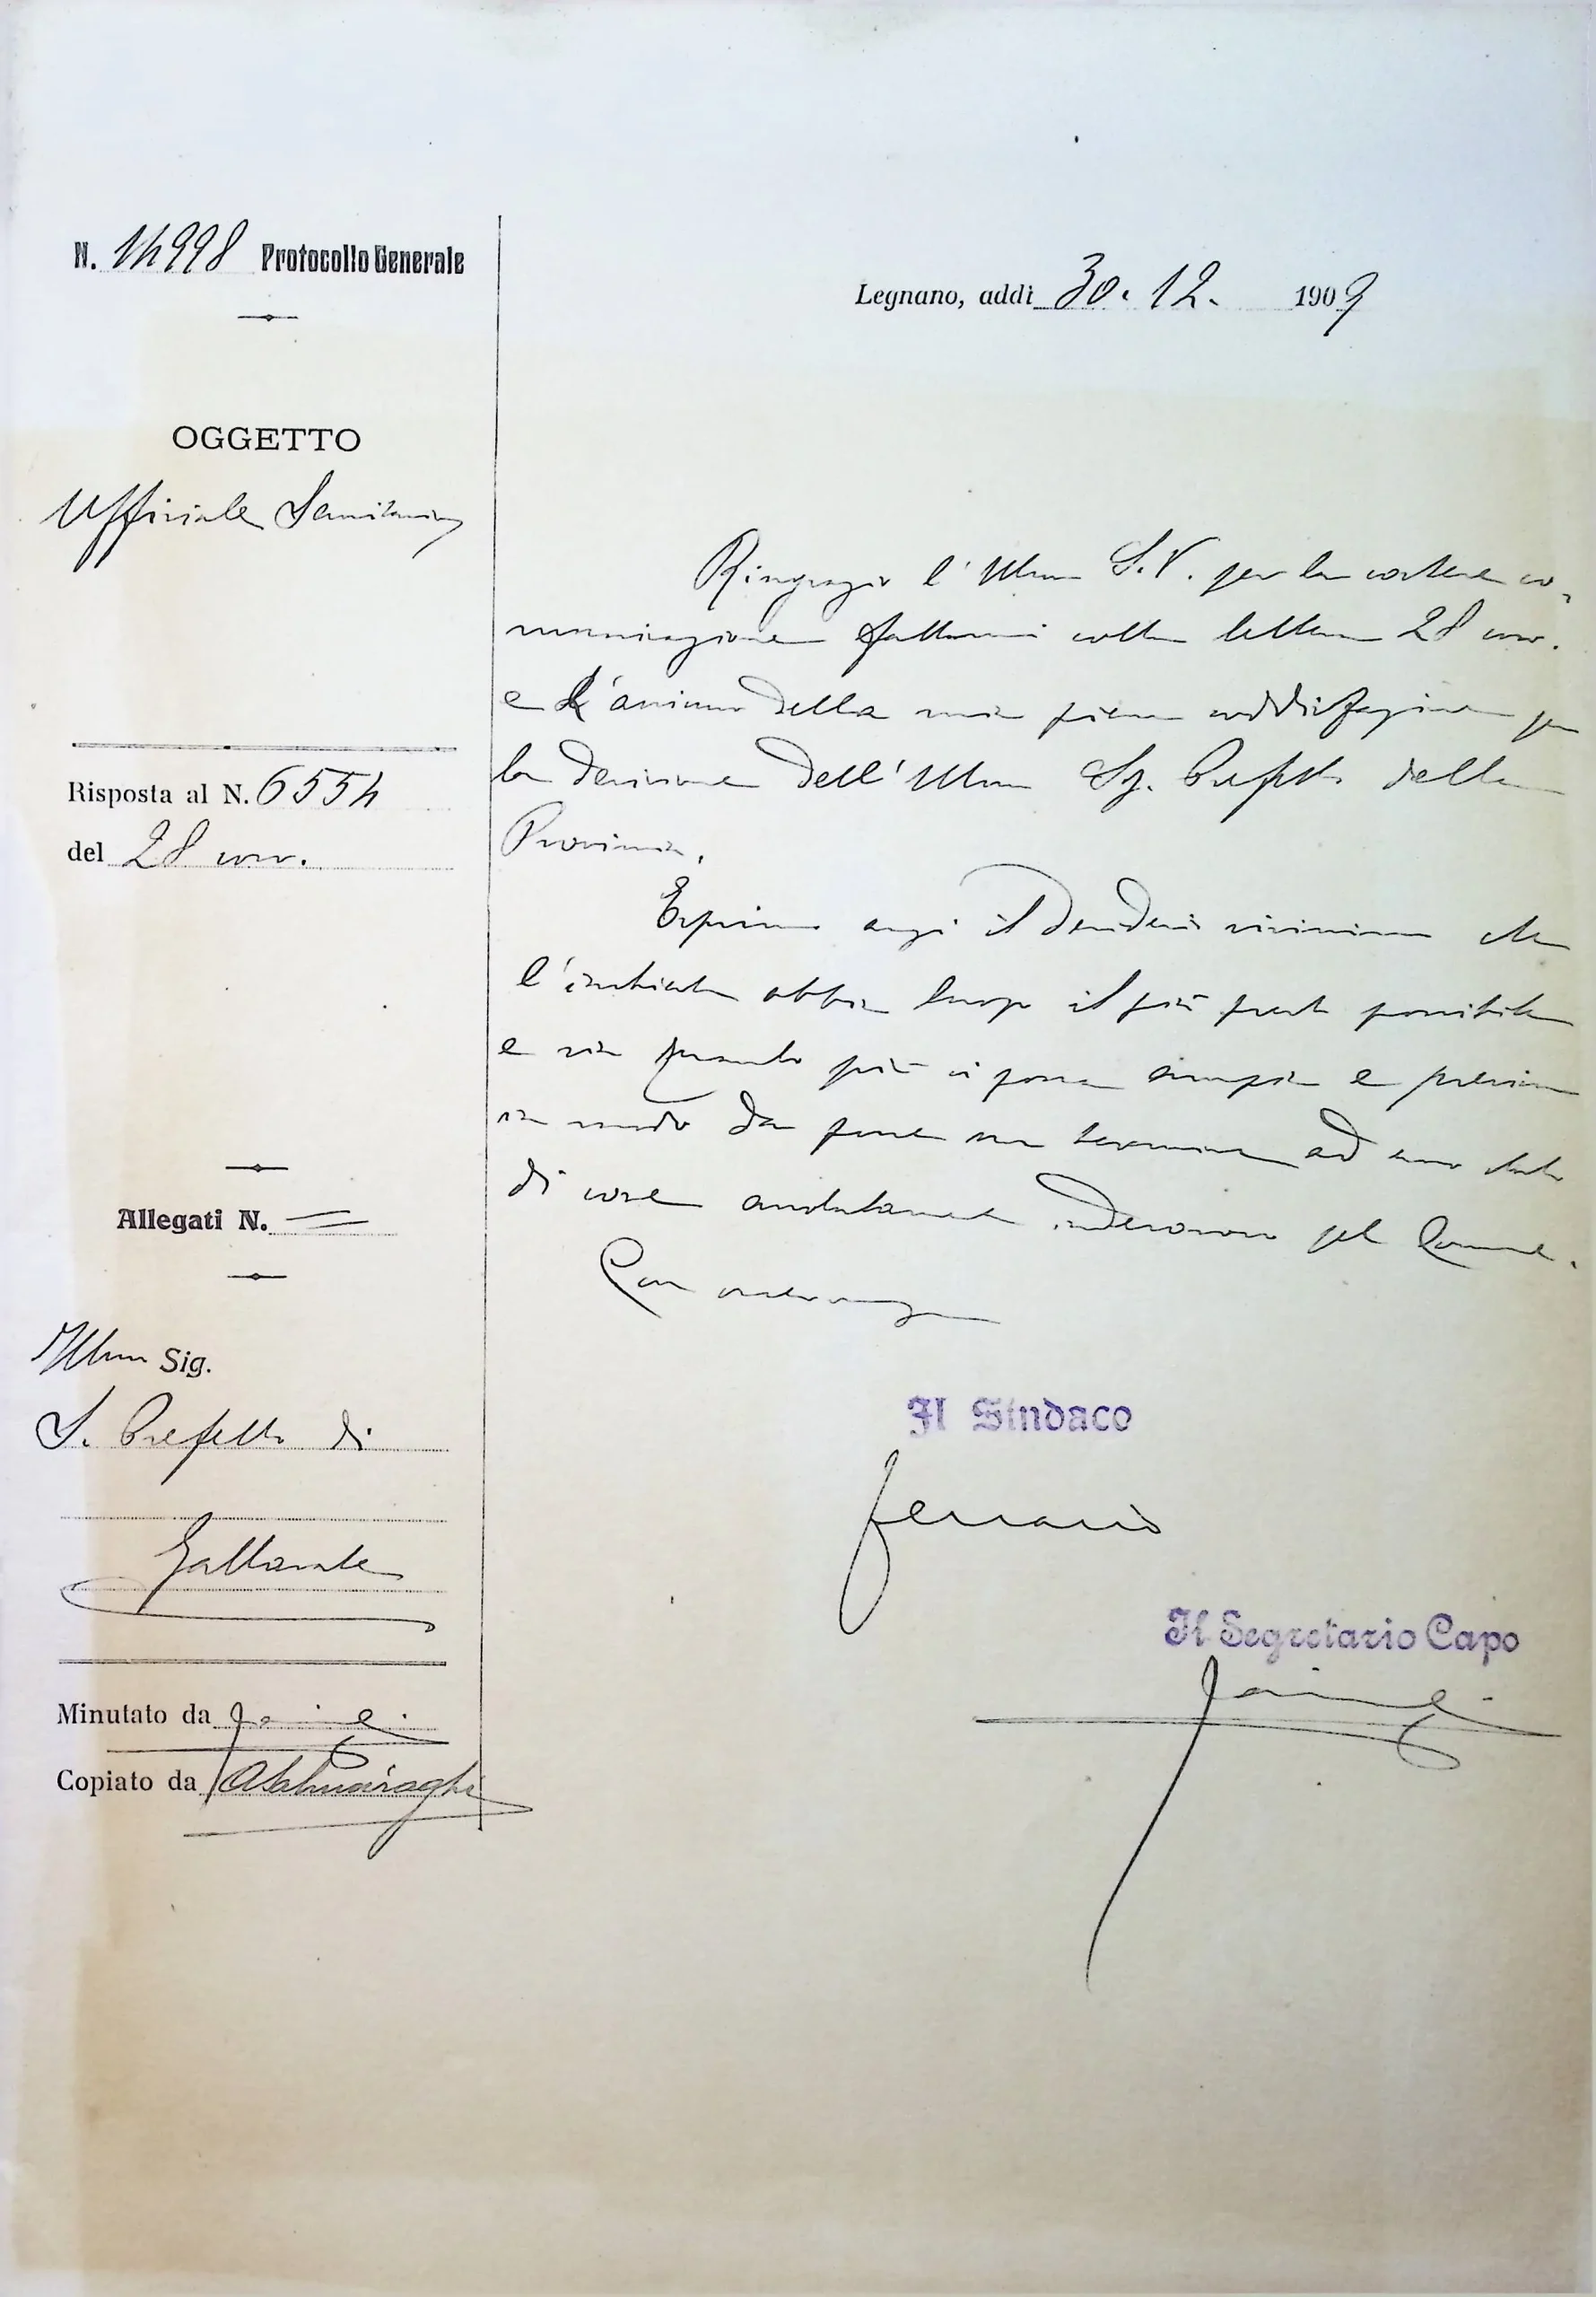 N. 14998 Protocollo Generale
Legnano, addì 30. 12. 1909
OGGETTO
Ufficiale Sanitario
Risposta al N. 6554
del 28 corr.
Allegati N.
Illmo Sig.
S. Prefetto di
Gallarate
Minutato da
Copiato da
Ringrazio l'Illma S.V. per la cortese co-
municazione fattami colla lettera 28 corr.
e l'assicuro della mia piena soddisfazione per
la decisione dell'Illmo Sig. Prefetto della
Provincia.
Esprimo anzi il desiderio vivissimo che
l'inchiesta abbia luogo il più presto possibile
e sia quanto più si possa ampia e precisa
in modo da porre un termine ad uno stato
di cose assolutamente indecoroso pel Comune.
Con osservanza
Il Sindaco
Ferrario
Il Segretario Capo